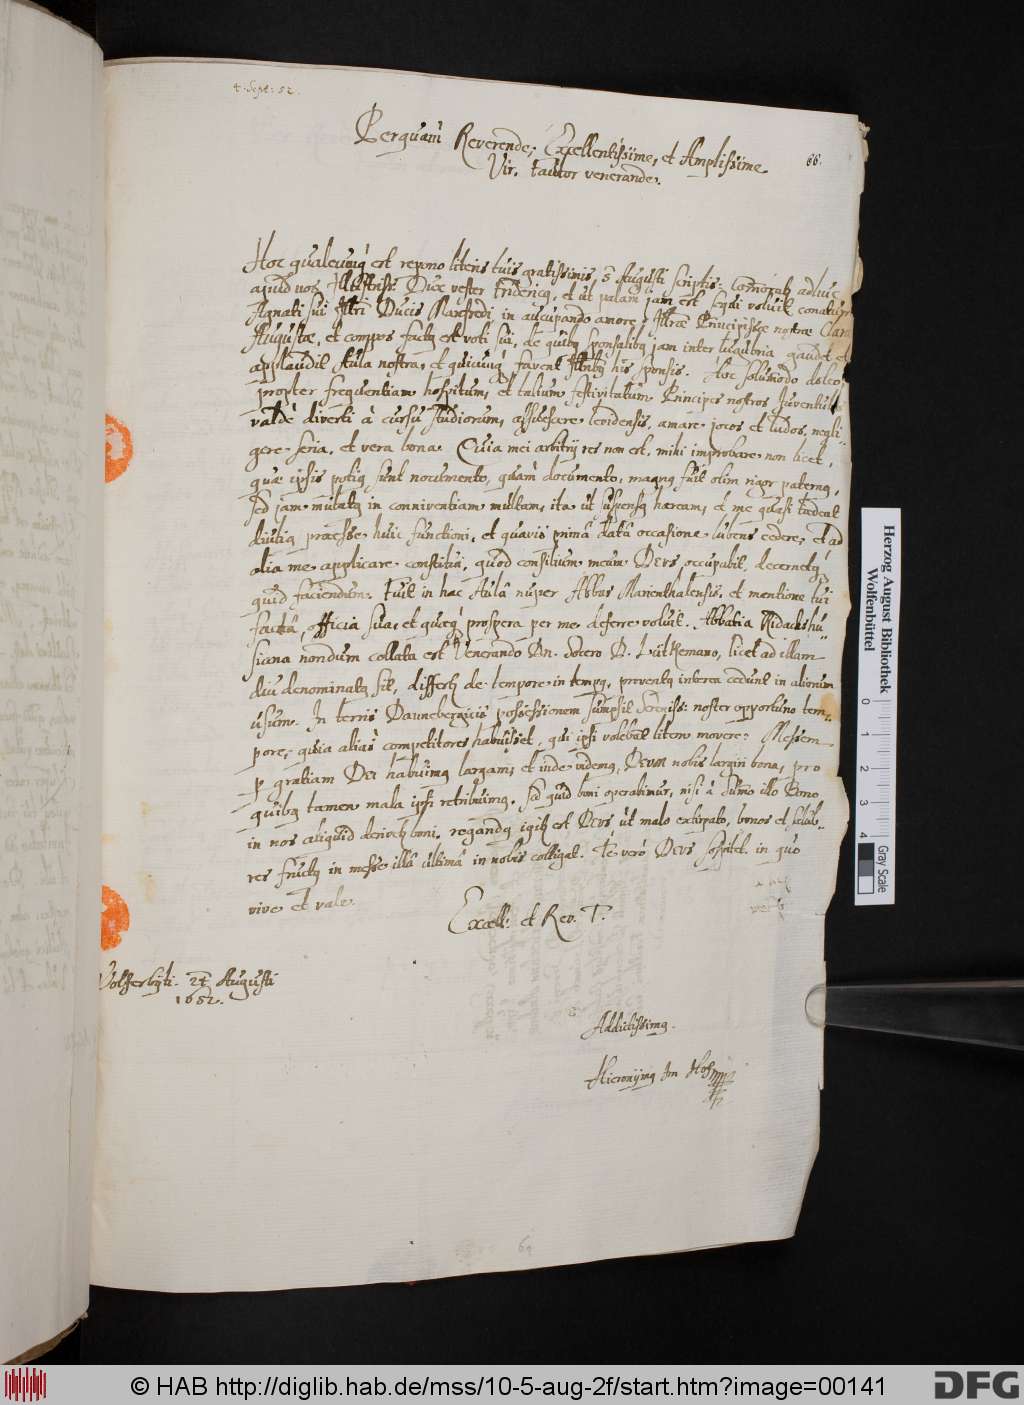 4. Sept: 52.
Perquam Reverende, Excellentissime, et Amplissime
66.
Vir. fautor venerande.
Hoc qualecunq est repono literis tuis gratissimis 5 Augusti scriptis: Commorat adhuc
apud vos Illustriss: Dux vester Fridericq, et ut palam jam est sequi voluit conatum
Agnati sui Illri Ducis Manfredi in aucupando amore Illræ Principissæ nostræ Claræ
Augustæ, et compos factq est voti sui, de quibq sponsalibq jam inter lugubria gaudet et
applaudit Aula nostra, et quicunq favent Illribq his sponsis. Hoc solummodo doleo
propter frequentiam hospitum, et talium festivitatum Principes nostros Juveniles
valdè diverti à cursu studiorum, assuescere levidensis, amare jocos et ludos, negli-
gere seria, et vera bona. Quia mei arbitrij res non est, mihi improbare non licet,
quæ ipsis potiq sunt nocumento, quàm documento, magnq fuit olim rigor paternq,
sed jam mutatq in conniventiam multam, ita ut suspensq hæream, et me quasi tædeat
diutiq præesse huic functioni, et quavis primâ datâ occasione lubens cedere, et ad
alia me applicare constitui, quod consilium meum DEUS occupabit, decernetq
quid faciendum. Fuit in hac Aulâ nuper Abbas Marienthalensis, et mentione tui
factâ, officia sua, et quæq prospera per me deferre voluit. Abbatia Ridackshu-
siana nondum collata est Venerando Dn. Socero D. Lutkemano, licet ad illam
diu denominatq sit, differtr de tempore in tempq, proventq interea cedunt in aliorum
usum. In terris Dannebergicis possessionem sumpsit Sereniss: noster opportuno tem-
pore, quia aliàs competitores habuisset, qui ipsi volebant litem movere: Messem
p gratiam DEI habuimq largam, et inde videmq, DEUM nobis largiri bona, pro
quibq tamen mala ipsi retribuimq. Sed quid boni operabimur, nisi à summo illo Bono
in nos aliquid derivetr boni. rogandq igitr est DEUS ut malo extirpato, bonos et salub-
res fructq in messe illâ ultimâ in nobis colligat. Te verò DEUS sospitet. in quo
vive et vale.
Excell: et Rev. T.
Wolferbyti. 24 Augusti
1652.
Addictissimq.
Hieronymq Im Hof
69
Herzog August Bibliothek
Wolfenbüttel
0 1 2 3 4
Gray Scale
© HAB http://diglib.hab.de/mss/10-5-aug-2f/start.htm?image=00141
DFG